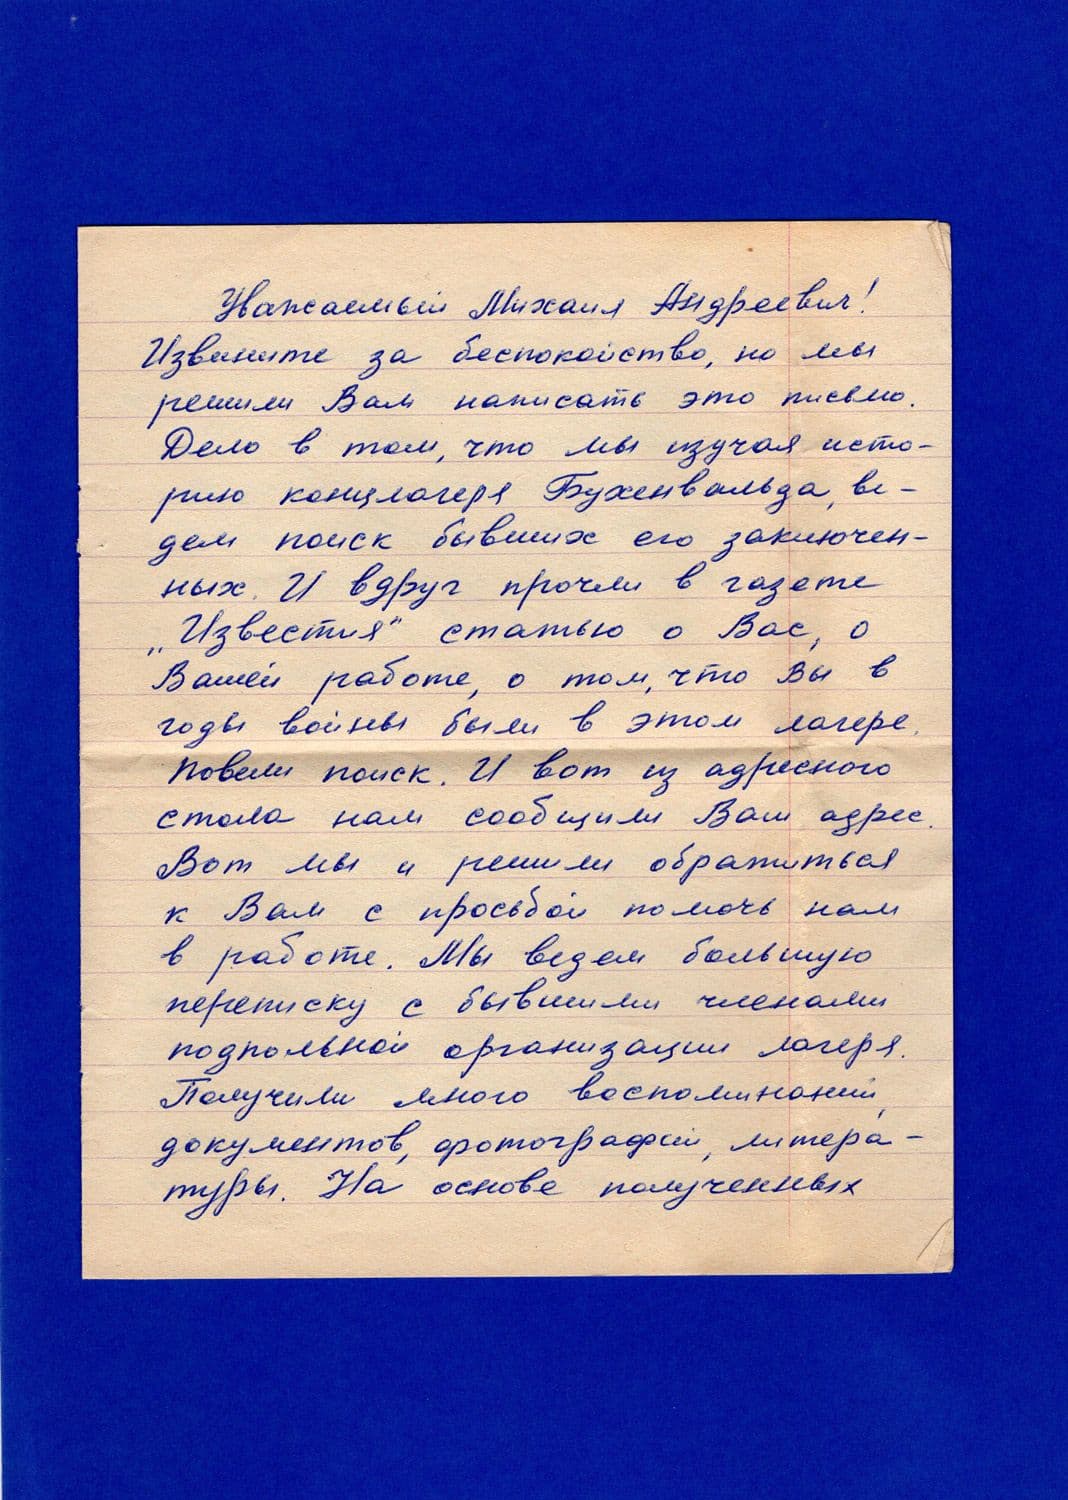 Уважаемый Михаил Андреевич!
Извините за беспокойство, но мы
решили Вам написать это письмо.
Дело в том, что мы изучая исто-
рию концлагеря Бухенвальда, ве-
дем поиск бывших его заключен-
ных. И вдруг прочли в газете
„Известия“ статью о Вас, о
Вашей работе, о том, что Вы в
годы войны были в этом лагере.
Повели поиск. И вот из адресного
стола нам сообщили Ваш адрес.
Вот мы и решили обратиться
к Вам с просьбой помочь нам
в работе. Мы ведем большую
переписку с бывшими членами
подпольной организации лагеря.
Получили много воспоминаний,
документов, фотографий, литера-
туры. На основе полученных